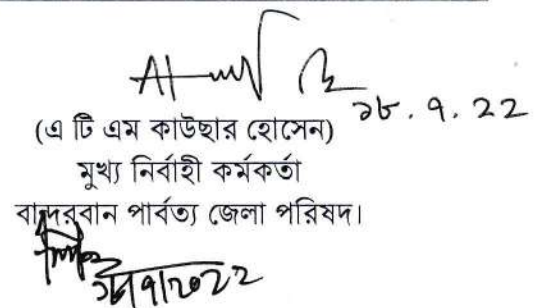 ১৮.৭.২২
(এ টি এম কাউছার হোসেন)
মুখ্য নির্বাহী কর্মকর্তা
বান্দরবান পার্বত্য জেলা পরিষদ।
১৮/৭/২০২২